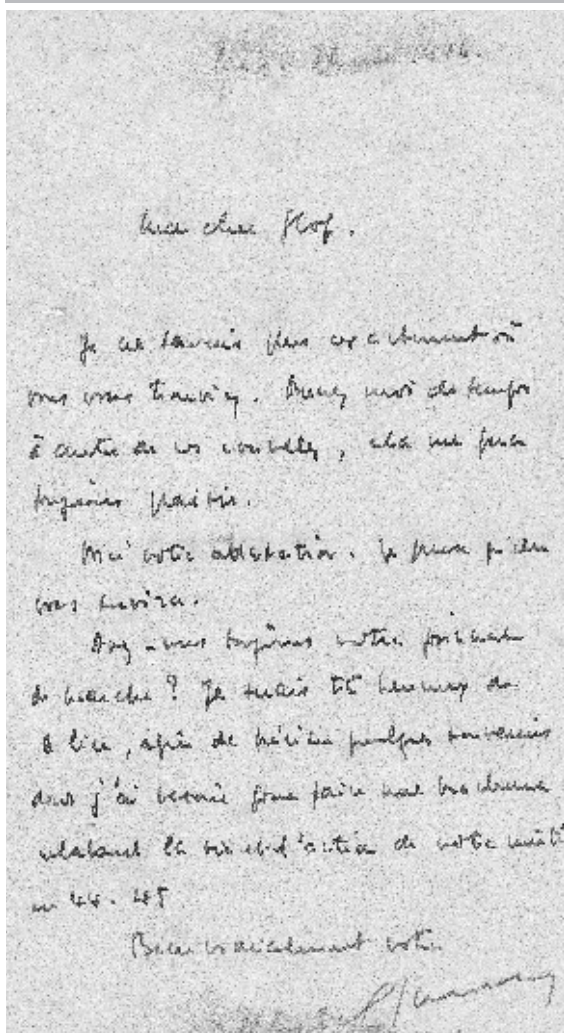 Mon cher Hof.
Je ne savais plus exactement où
vous vous trouviez. Donnez moi de temps
à autre de vos nouvelles, cela me fera
toujours plaisir.
votre attestation. Je pense
vous
Avez-vous toujours votre journal
de marche ? Je serais très heureux de
le lire, afin de préciser quelques souvenirs
dont j'ai besoin pour faire une brochure
relatant la vie et l'action de notre unité
en 44-45
Bien cordialement votre